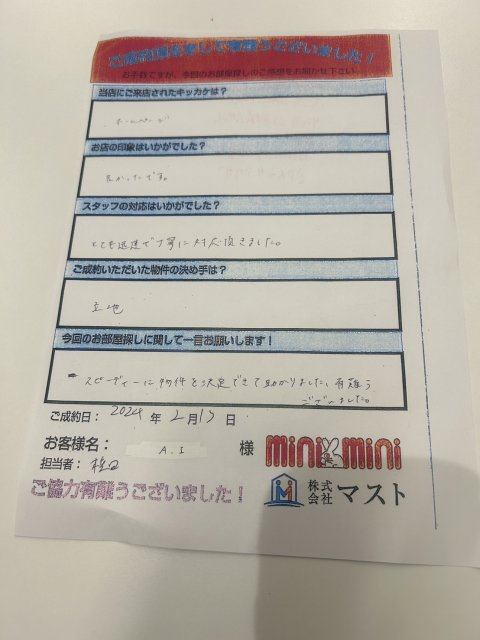 ご成約誠にまして有難うございました！
お手数ですが、今回のお部屋探しのご感想をお聞かせ下さい。
当店にご来店されたキッカケは？
ホームページ
お店の印象はいかがでした？
良かったです。
スタッフの対応はいかがでした？
とても迅速で丁寧に対応頂きました。
ご成約いただいた物件の決め手は？
立地
今回のお部屋探しに関して一言お願いします！
スピーディーに物件を決定できて助かりました。有難う
ございました。
ご成約日： 2024 年 2月 17 日
お客様名： A.I 様
minimini
担当者：
ご協力有難うございました！
株式会社 マスト